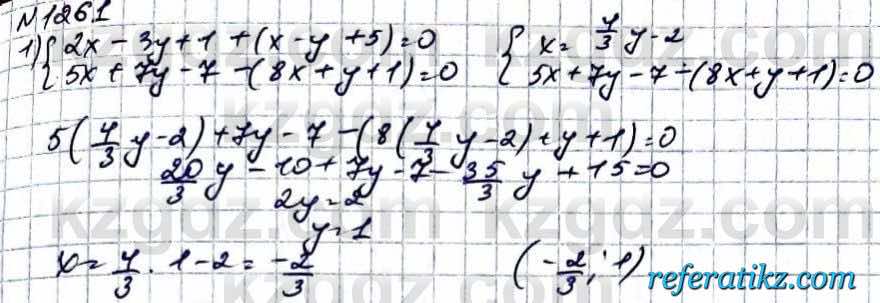 №1261
1) { 2x - 3y + 1 + (x - y + 5) = 0
5x + 7y - 7 - (8x + y + 1) = 0
{ x = 4/3 y - 2
5x + 7y - 7 - (8x + y + 1) = 0
5(4/3 y - 2) + 7y - 7 - (8(4/3 y - 2) + y + 1) = 0
20/3 y - 10 + 7y - 7 - 35/3 y + 15 = 0
2y = 2
y = 1
x = 4/3 · 1 - 2 = -2/3
(-2/3; 1)
kzgdz.com
referatikz.com